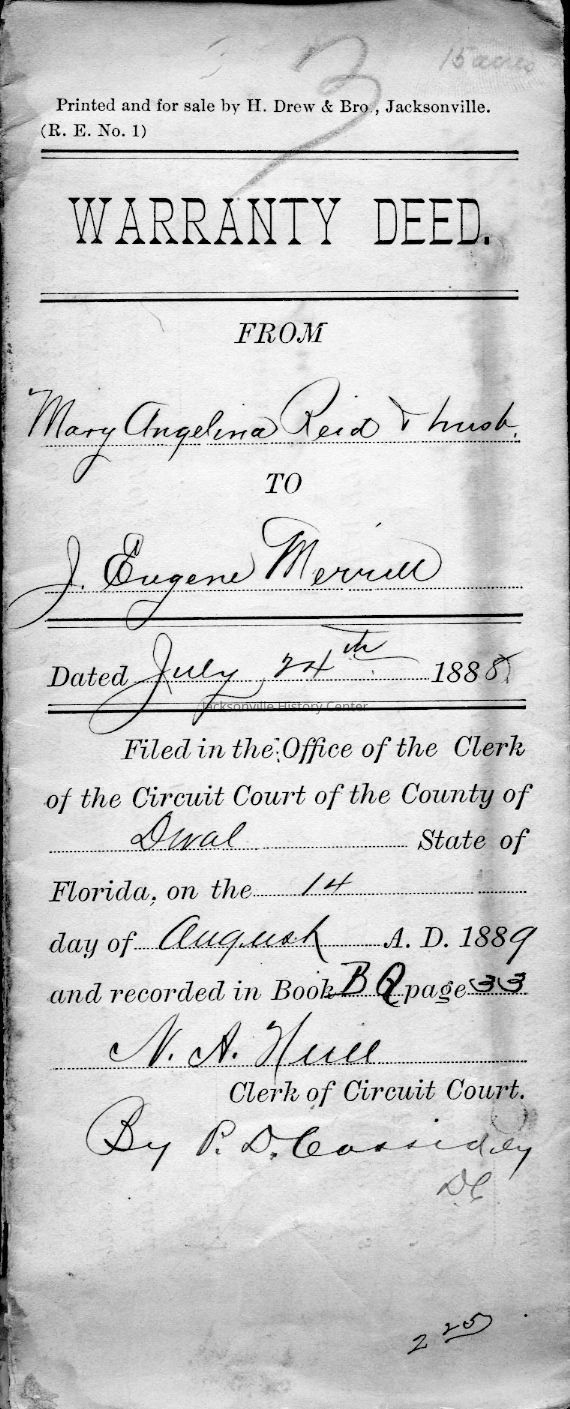 3
15 acres
Printed and for sale by H. Drew & Bro., Jacksonville.
(R. E. No. 1)
WARRANTY DEED.
FROM
Mary Angelina Reid & husb.
TO
J. Eugene Merrill
Dated July 24th 1888
Jacksonville History Center
Filed in the Office of the Clerk
of the Circuit Court of the County of
Duval State of
Florida, on the 14
day of August A. D. 1889
and recorded in Book BQ page 33
N. A. Hull
Clerk of Circuit Court.
By P. D. Cassidey
DC
2 25